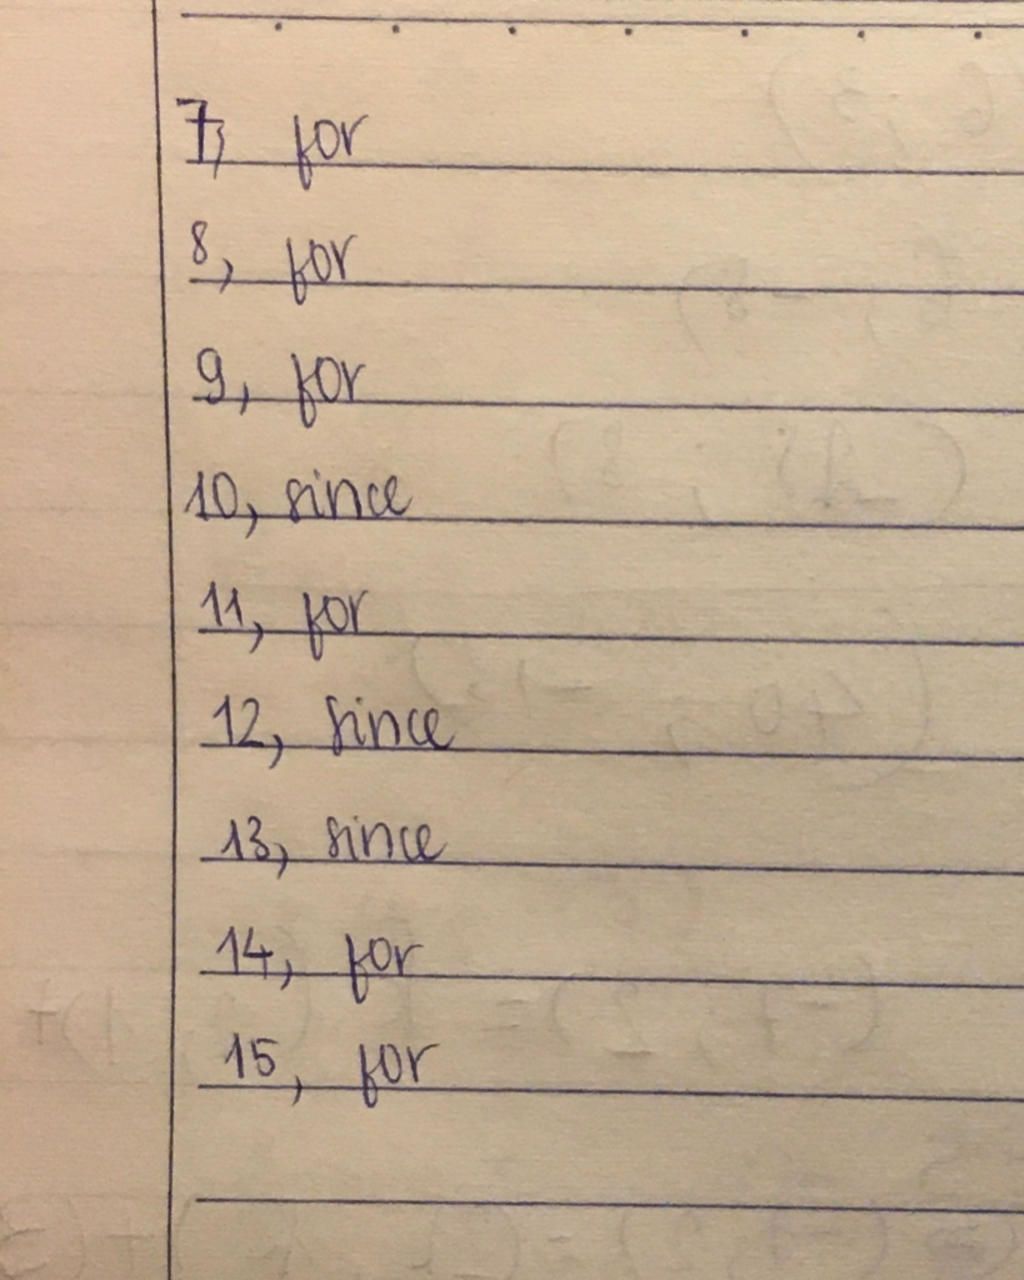 7, for
8, for
9, for
10, since
11, for
12, since
13, since
14, for
15, for